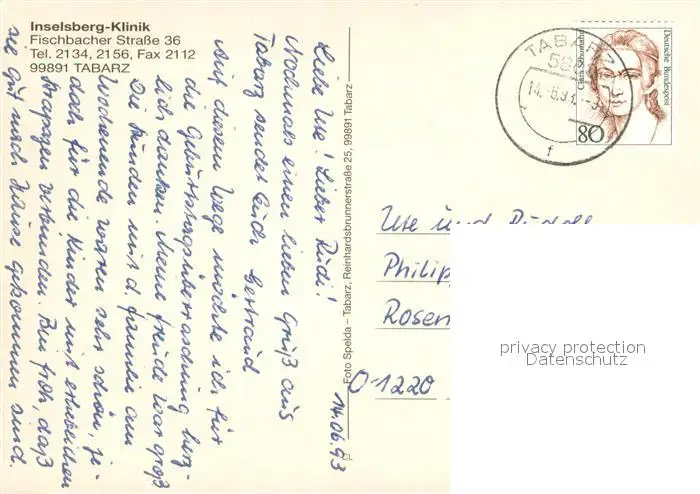 Inselsberg-Klinik
Fischbacher Straße 36
Tel. 2134, 2156, Fax 2112
99891 TABARZ
14.06.93
Liebe Ute! Lieber Rudi!
Nochmals einen lieben Gruß aus
Tabarz sendet Euch Gertraud
Auf diesem Wege möchte ich für
die Geburtstagsüberraschung herz-
lich danken. Meine Freude war groß
Die Stunden mit d. Familie am
Wochenende waren sehr schön, je-
doch für die Kinder mit erheblichen
Strapazen verbunden. Bin froh, daß
sie gut nach Hause gekommen sind.
Foto Spelda – Tabarz, Reinhardsbrunnerstraße 25, 99891 Tabarz
TABARZ
14.-6.93
f
Clara Schumann
Deutsche Bundespost
80
Ute und Rudolf
Philipp
Rosen
O-1220
privacy protection
Datenschutz